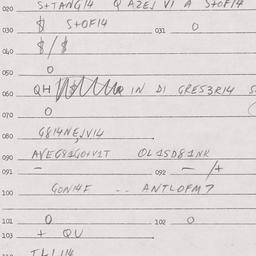 020 S+TANG14 Q AZEJ VI A S+OF14
030 $ S+OF14 031 O
040 $/$
050 O
060 QH IN DI GRES3R14
070 O
080 G814NEJV14
090 AVEG81GO+V1T OL1SD81NK
091 – 092 – /+
100 GON14F -- ANTLOFM7
101 O 102 O
103 + QU